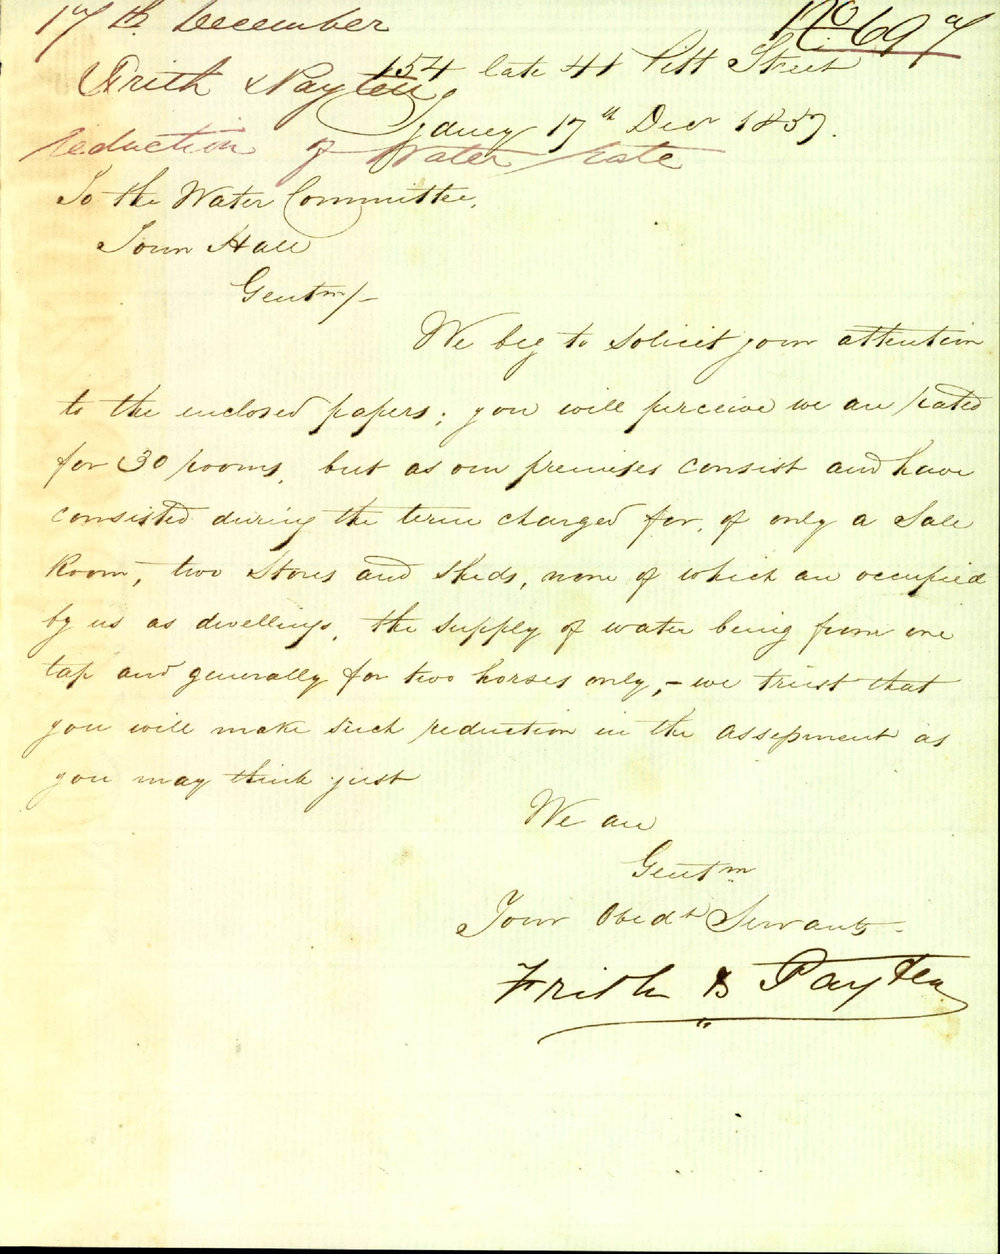 17th December
No 697
Frith & Payten
154 late 41 Pitt Street
Sydney 17th Decr 1857.
reduction of Water Rate
To the Water Committee.
Town Hall
Gentm/-
We beg to solicit your attention
to the enclosed papers; you will perceive we are rated
for 30 rooms, but as our premises consist and have
consisted during the term charged for, of only a Sale
Room, two Stores and Sheds, none of which are occupied
by us as dwellings, the supply of water being from one
tap and generally for two horses only, - we trust that
you will make such reduction in the assessment as
you may think just
We are
Gentm
Your Obedt Servants
Frith & Payten